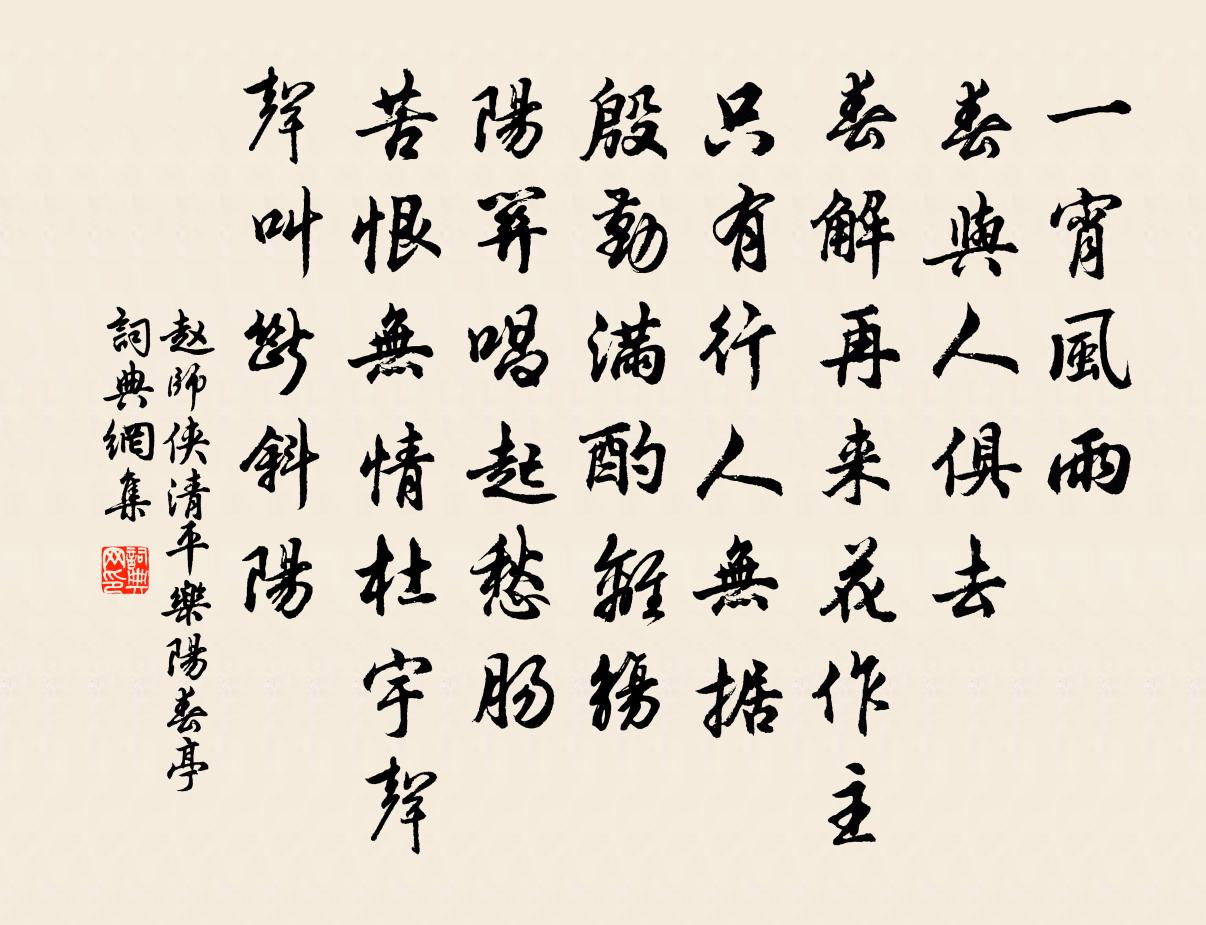 一宵風雨
春與人俱去
春解再来花作主
只有行人無据
殷勤滿酌離觴
陽關唱起愁腸
苦恨無情杜宇聲
聲叫斷斜陽
赵師侠清平樂陽春亭
詞典網集
詞典网印